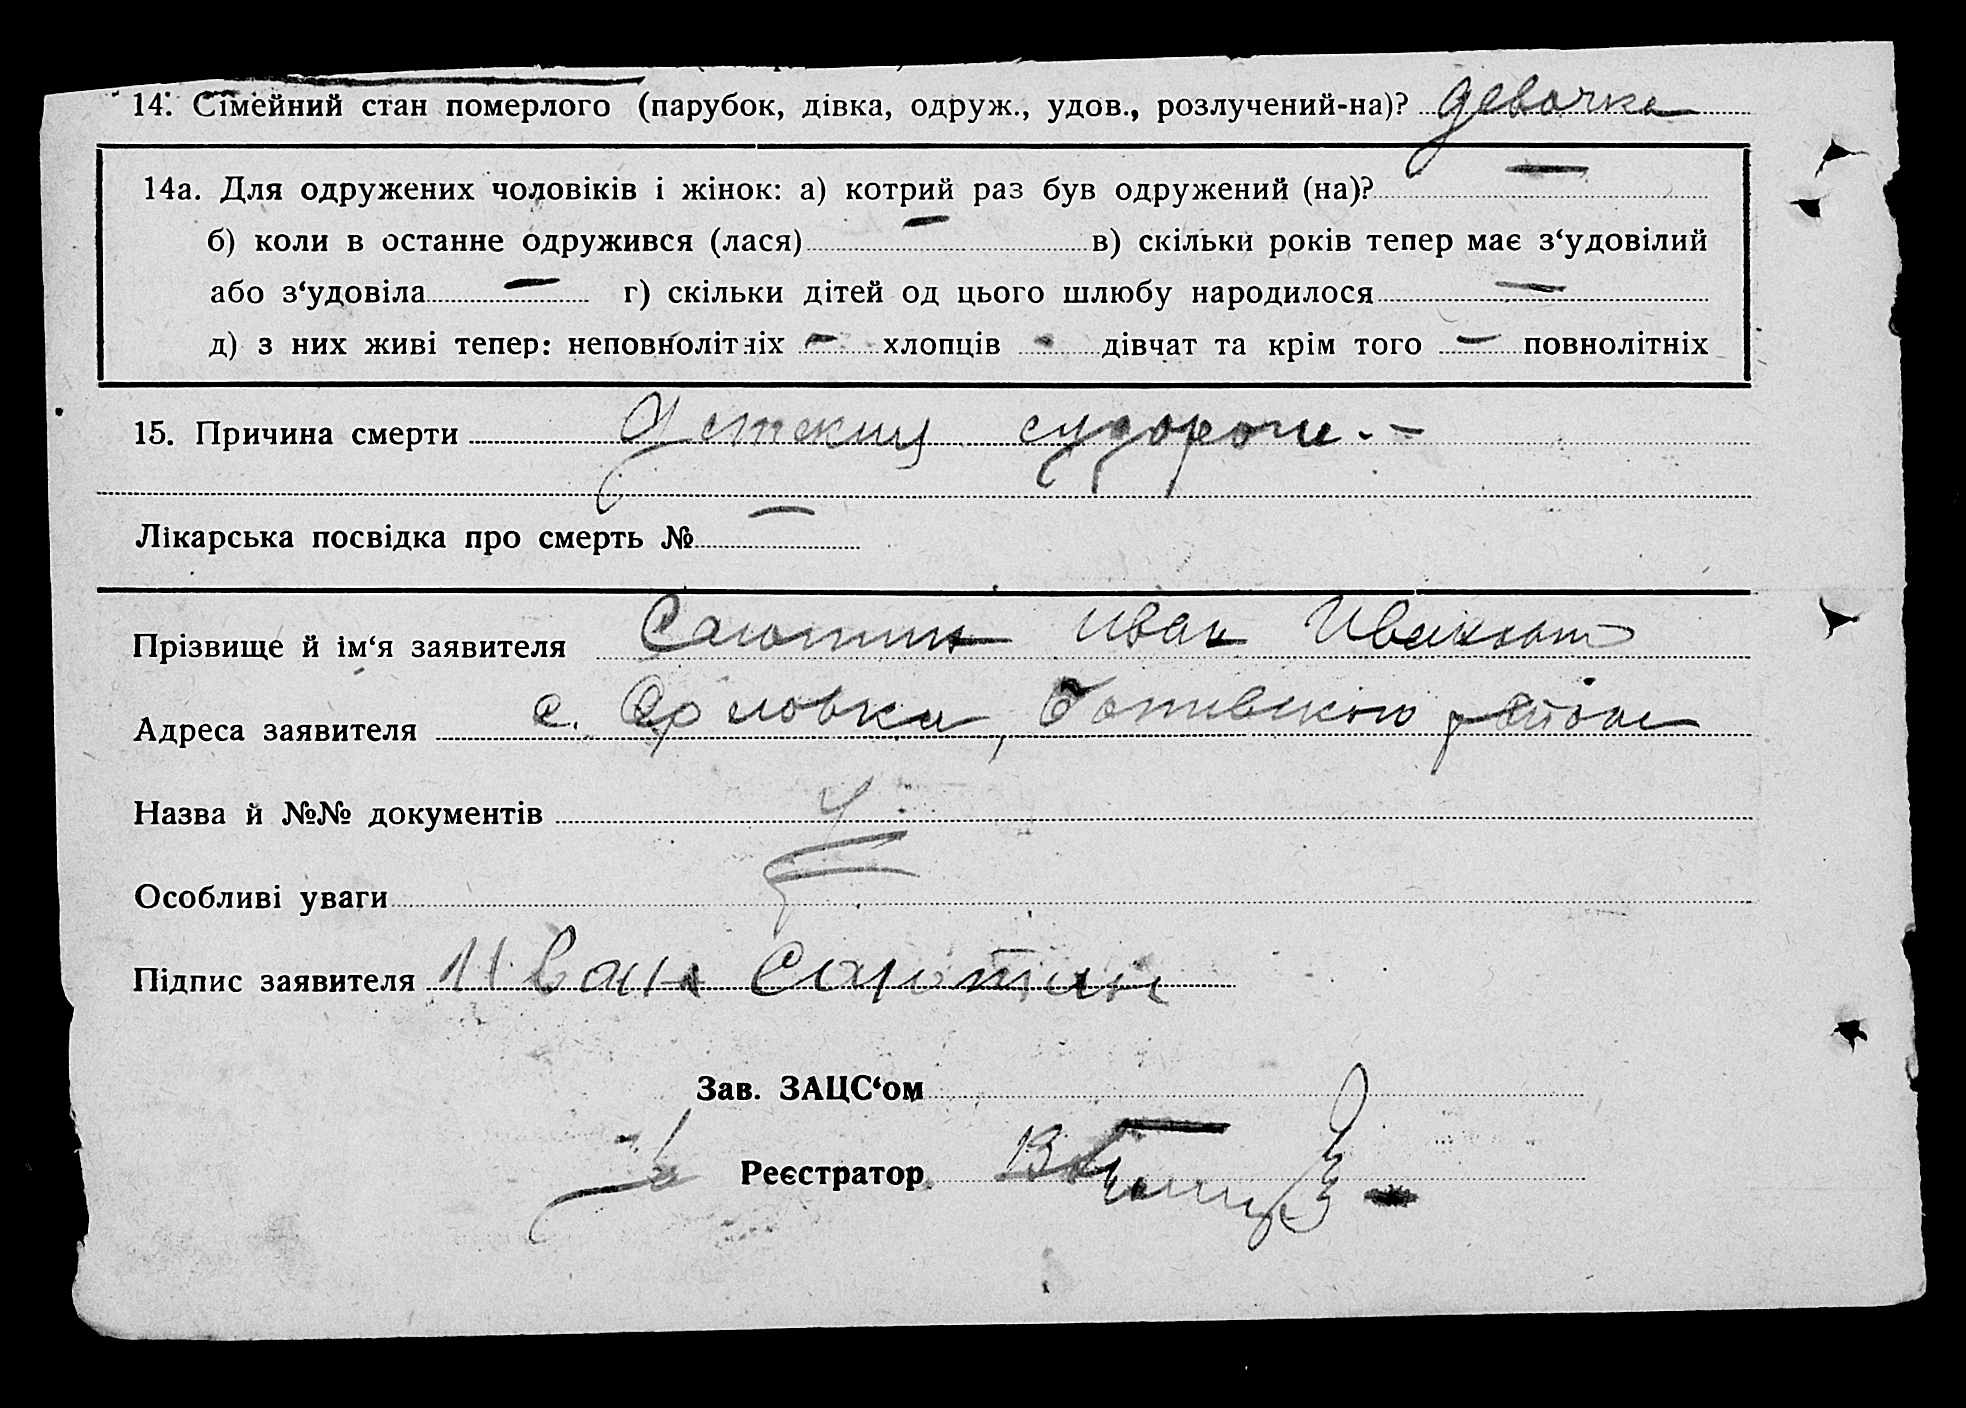 14. Сімейний стан померлого (парубок, дівка, одруж., удов., розлучений-на)? девочка
14а. Для одружених чоловіків і жінок: а) котрий раз був одружений (на)? —
б) коли в останне одружився (лася) — в) скільки років тепер має з‘удовілий
або з‘удовіла — г) скільки дітей од цього шлюбу народилося —
д) з них живі тепер: неповнолітніх — хлопців - дівчат та крім того — повнолітніх
15. Причина смерти Детский судороги. -
Лікарська посвідка про смерть № —
Прізвище й ім‘я заявителя Саютин Иван Иванович
Адреса заявителя с. Орловка, Ботивского района
Назва й №№ документів
Особливі уваги
Підпис заявителя Иван Саютин
Зав. ЗАЦС‘ом
Реєстратор